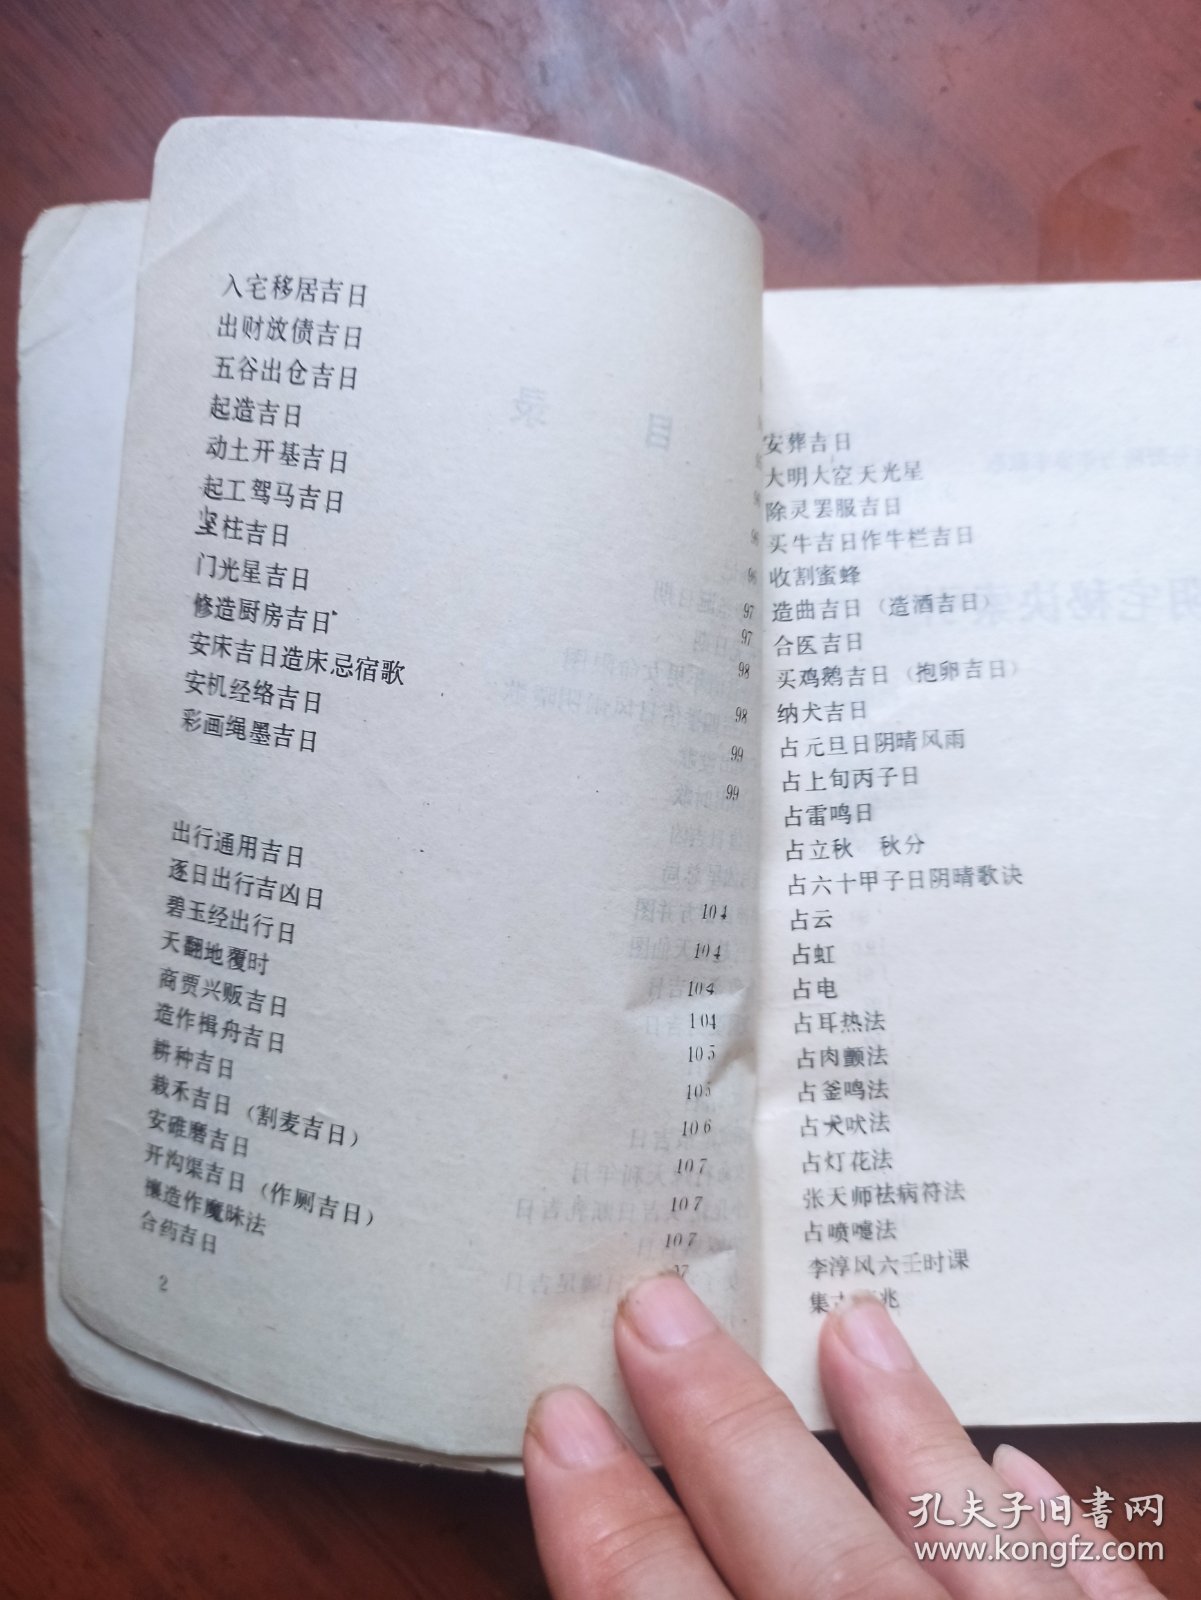 入宅移居吉日
出财放债吉日
五谷出仓吉日
起造吉日
动土开基吉日
起工驾马吉日
坚柱吉日
门光星吉日 96
修造厨房吉日 97
安床吉日造床忌宿歌 97
安机经络吉日 98
彩画绳墨吉日 98
99
99
出行通用吉日
逐日出行吉凶日
碧玉经出行日
天翻地覆时
商贾兴贩吉日
造作楫舟吉日
耕种吉日
栽禾吉日（割麦吉日）
安碓磨吉日
开沟渠吉日（作厕吉日）
禳造作魔昧法
合药吉日
104
104
104
104
105
105
106
107
107
107
2
目 录
安葬吉日
大明大空天光星
除灵罢服吉日
买牛吉日作牛栏吉日
收割蜜蜂
造曲吉日（造酒吉日）
合医吉日
买鸡鹅吉日（抱卵吉日）
纳犬吉日
占元旦日阴晴风雨
占上旬丙子日
占雷鸣日
占立秋 秋分
占六十甲子日阴晴歌诀
占云
占虹
占电
占耳热法
占肉颤法
占釜鸣法
占犬吠法
占灯花法
张天师祛病符法
占喷嚏法
李淳风六壬时课
集 兆
孔夫子旧书网
www.kongfz.com